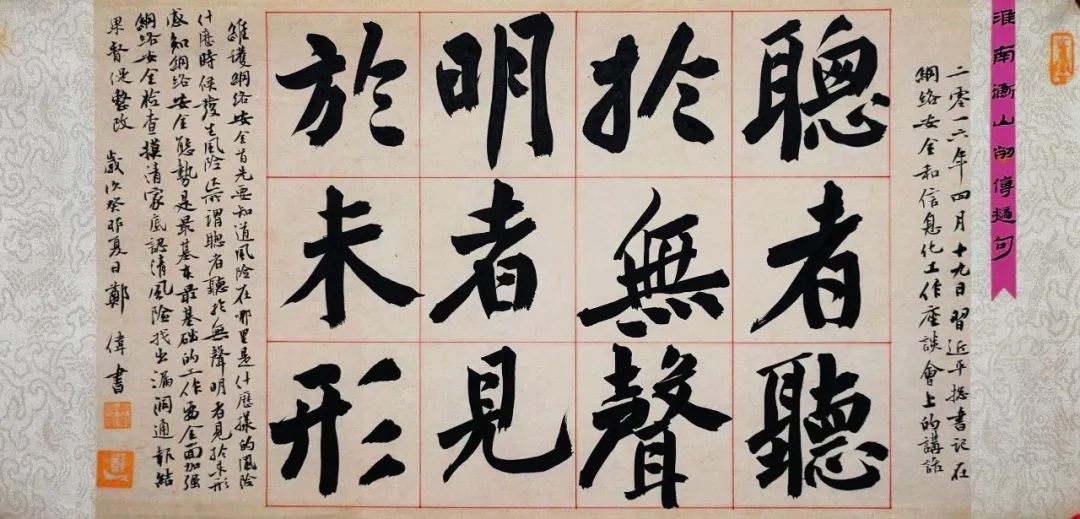 淮南衡山列傳句
二零一六年四月十九日習近平總書記在
網絡安全和信息化工作座談會上的講話
聰者聽
於無聲
明者見
於未形
維護網絡安全首先要知道風险在哪里是什麽樣的風险
什麽時候發生風险正所謂聰者聽於無聲明者見於未形
感知網絡安全態勢是最基本最基础的工作要全面加强
網絡安全檢查摸清家底認清風险找出漏洞通報結
果督促整改 歲次癸卯夏日鄭偉書